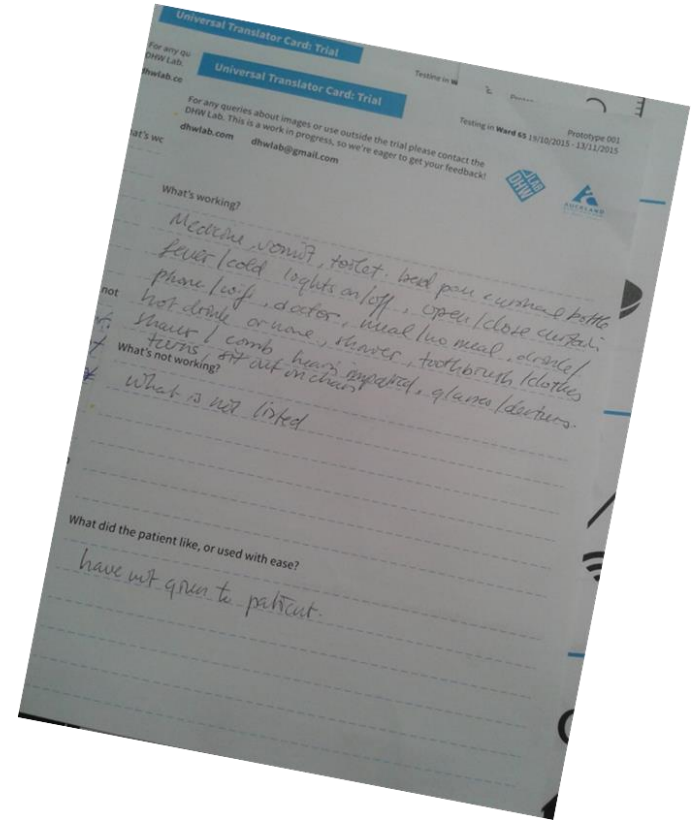 Universal Translator Card: Trial
For any qu
DHW Lab.
dhwlab.co
Testing in W
Universal Translator Card: Trial
Testing in Ward 65 19/10/2015 - 13/11/2015
Prototype 001
For any queries about images or use outside the trial please contact the
DHW Lab. This is a work in progress, so we're eager to get your feedback!
dhwlab.com dhwlab@gmail.com
DHW LAB
AUCKLAND
hat's wo
What's working?
Medicine, vomit, toilet, bed pan urinal bottle
fever/cold lights on/off, open/close curtain
phone/wifi, doctor, meal/no meal, drink/
hot drink or none, shower, toothbrush/clothes
shaver/comb hears impaired, glasses/dentures.
turns sit out in chair
not
What's not working?
What is not listed
What did the patient like, or used with ease?
have not given to patient.